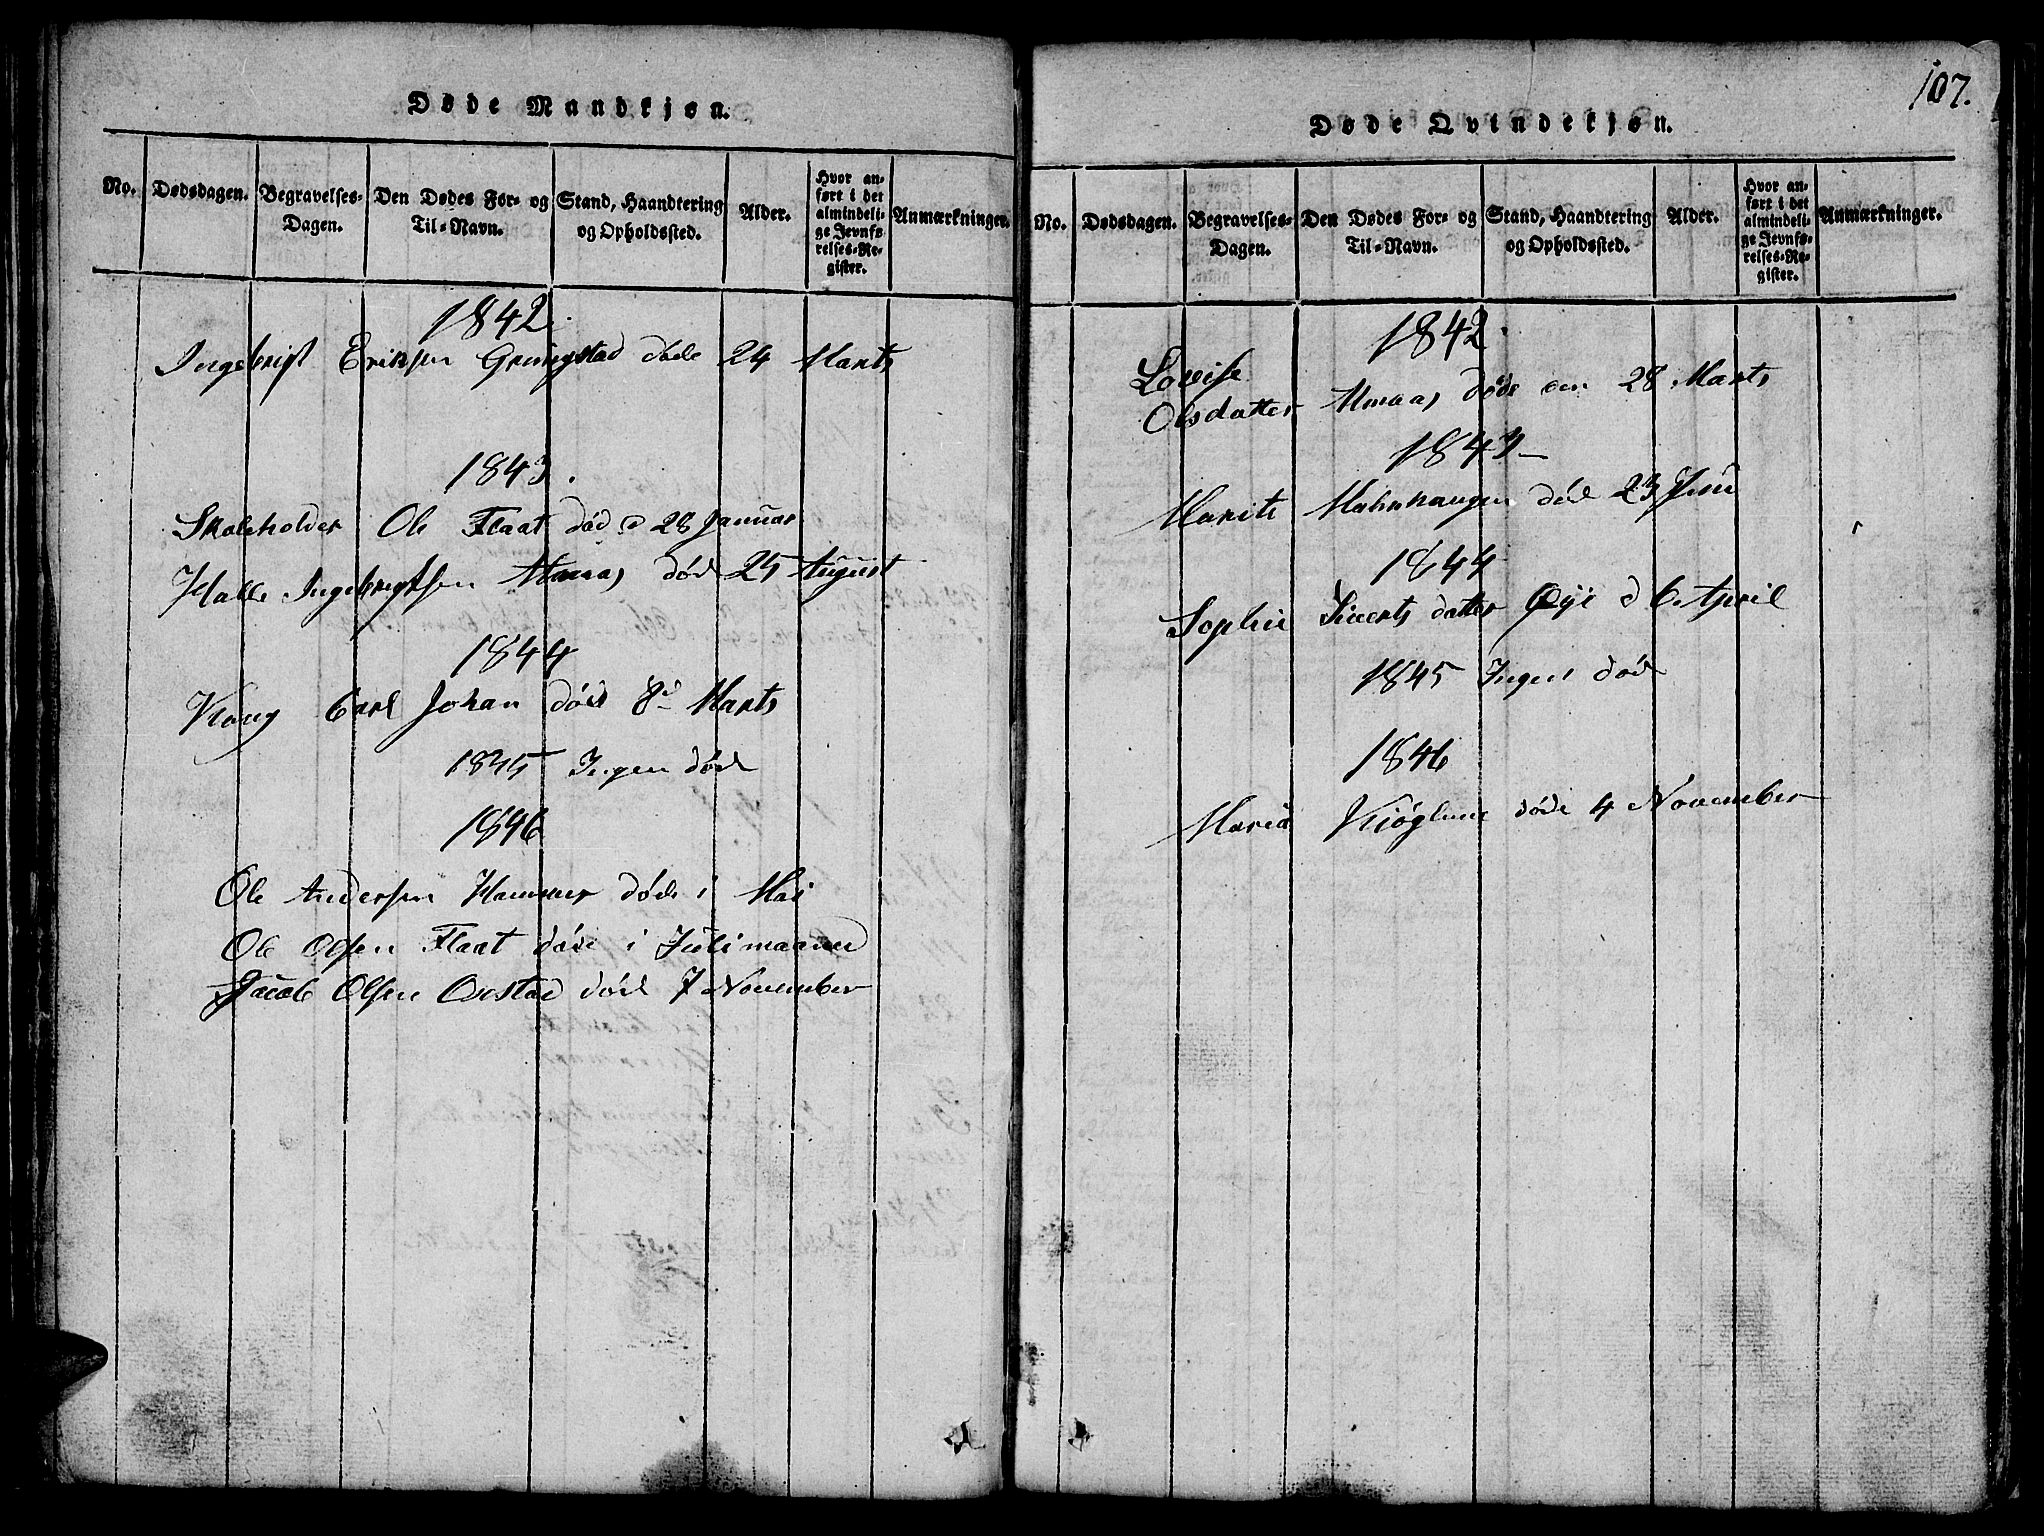 Døde Mandkjøn.
No.
Dødsdagen.
Begravelses-
Dagen.
Den Dødes For- og
Til-Navn.
Stand, Haandtering
og Opholdssted.
Alder.
Hvor an-
ført i det
almindeli-
ge Jevnfø-
relses-Re-
gister.
Anmærkninger.
1842.
Ingebrigt Eriksen døde 24 Marts
1843.
Skoleholder Ole Flaat død d 28 Januar
Halle Ingebrigtsen Moaas død 25 August
1844
Kong Carl Johan død 8d Marts
1845 Ingen død
1846
Ole Andersen Hammer døde i Mai
Ole Olsen Flaat døde i Juli maaned
Jacob Olsen død 7 November
107.
Døde Qvindekjøn.
No.
Dødsdagen.
Begravelses-
Dagen.
Den Dødes For- og
Til-Navn.
Stand, Haandtering
og Opholdssted.
Alder.
Hvor an-
ført i det
almindeli-
ge Jevnfø-
relses-Re-
gister.
Anmærkninger.
1842.
Lovise
Olsdatter Moaas døde den 28 Marts
1843
Marit død 23 Juni
1844
Sophie Siverts datter Øye d 6 April
1845 Ingen død
1846
Maria døde 4 November